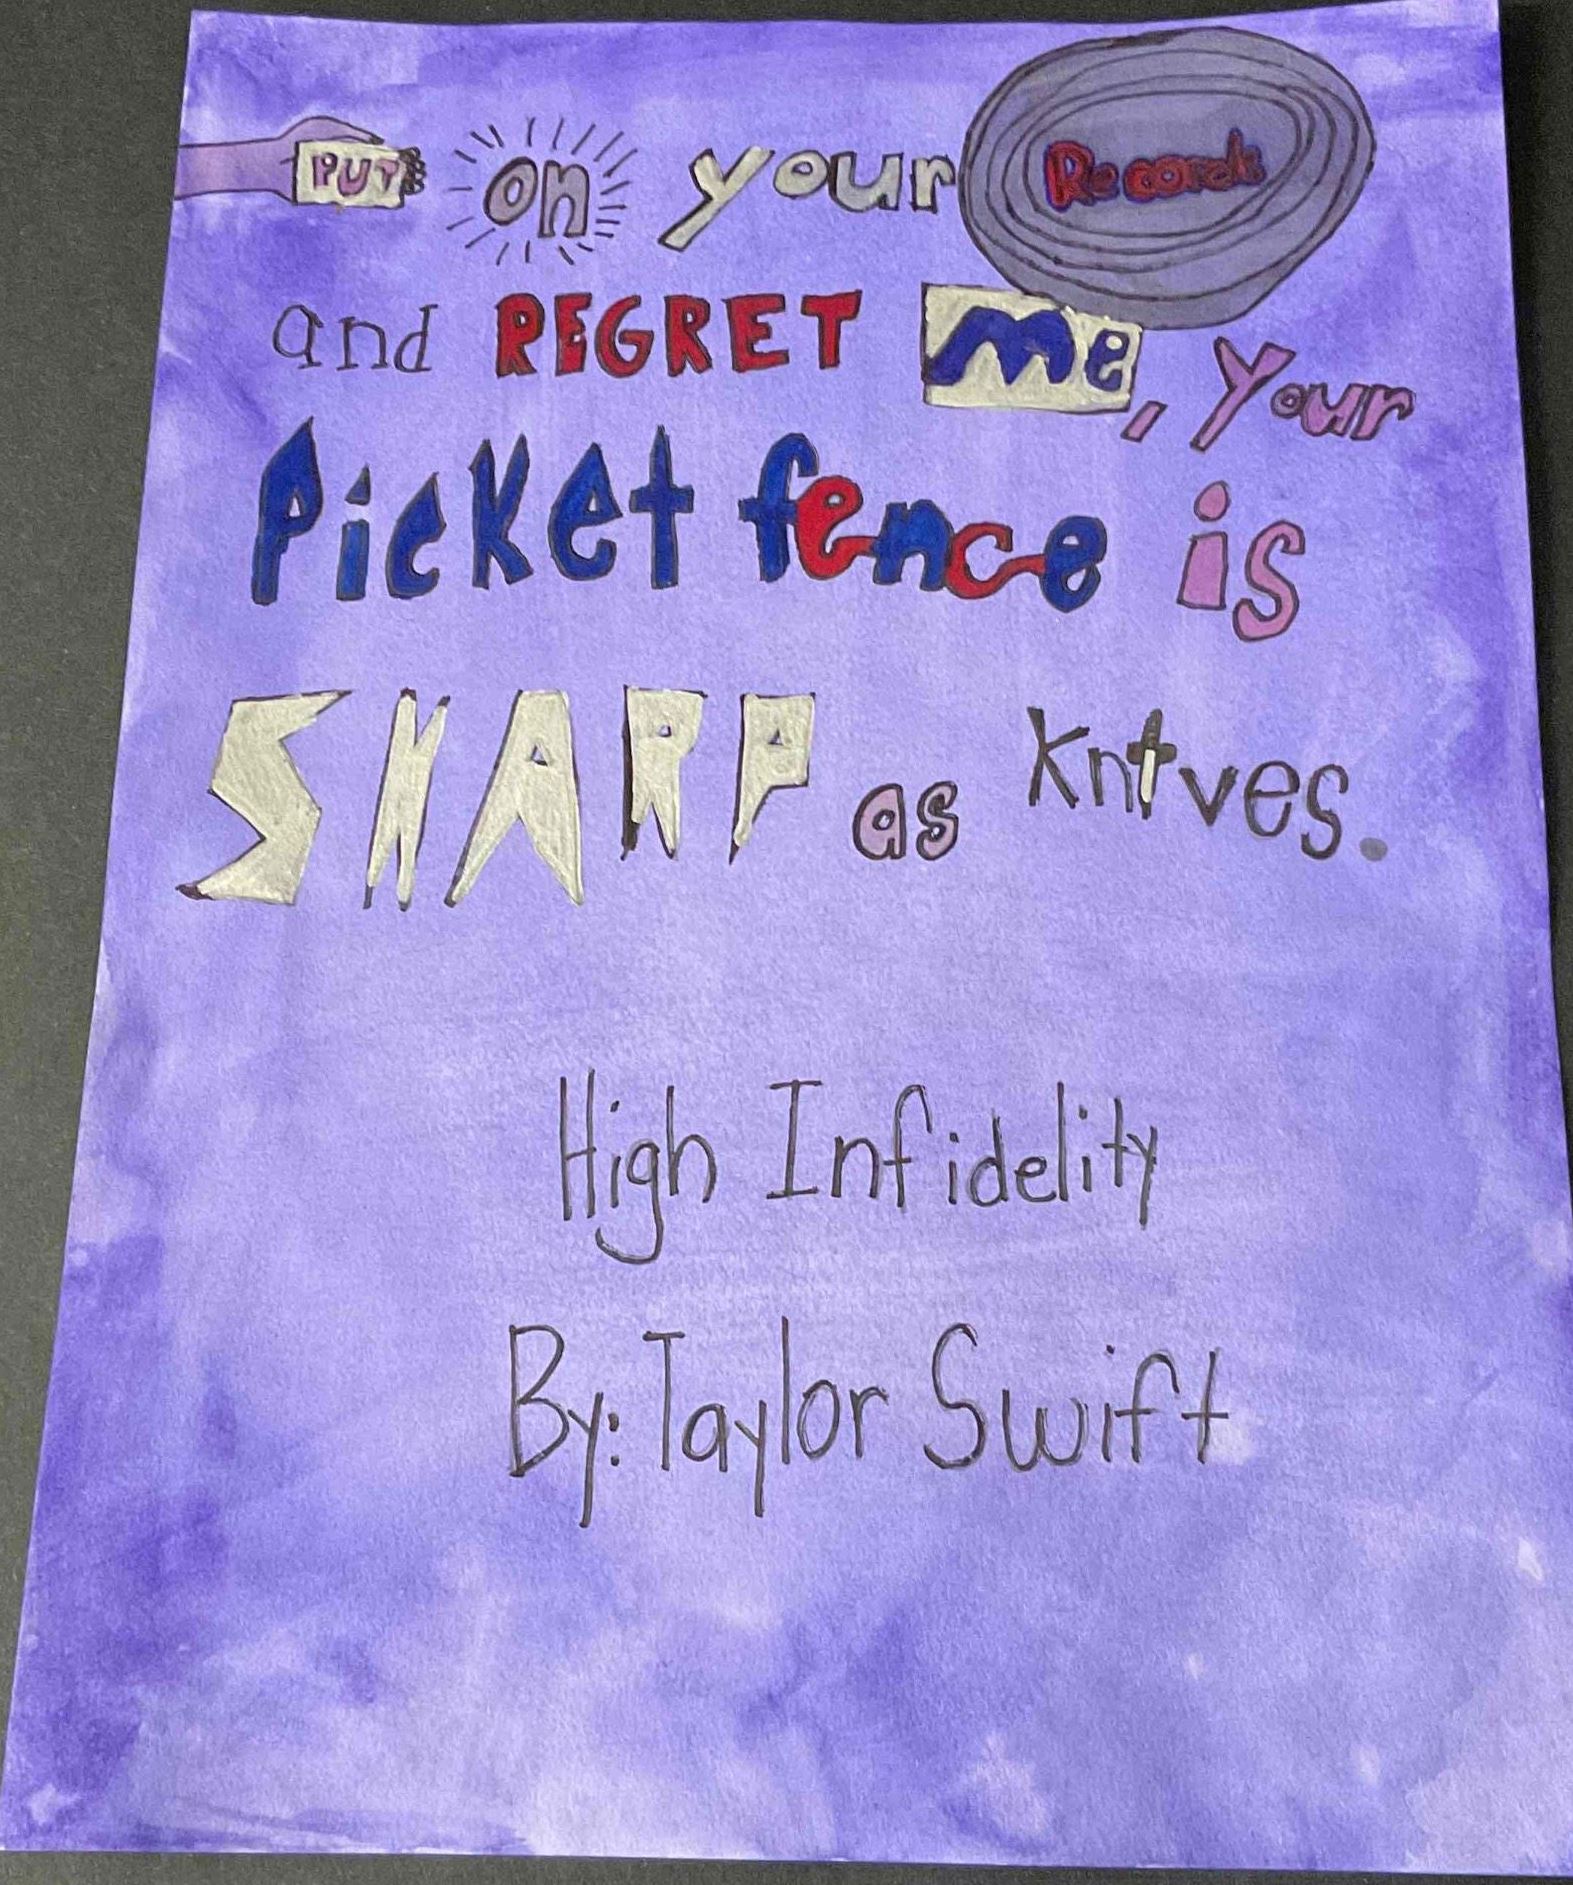 PUT on your Records
and REGRET Me, Your
Picket fence is
SHARP as Knives.
High Infidelity
By: Taylor Swift